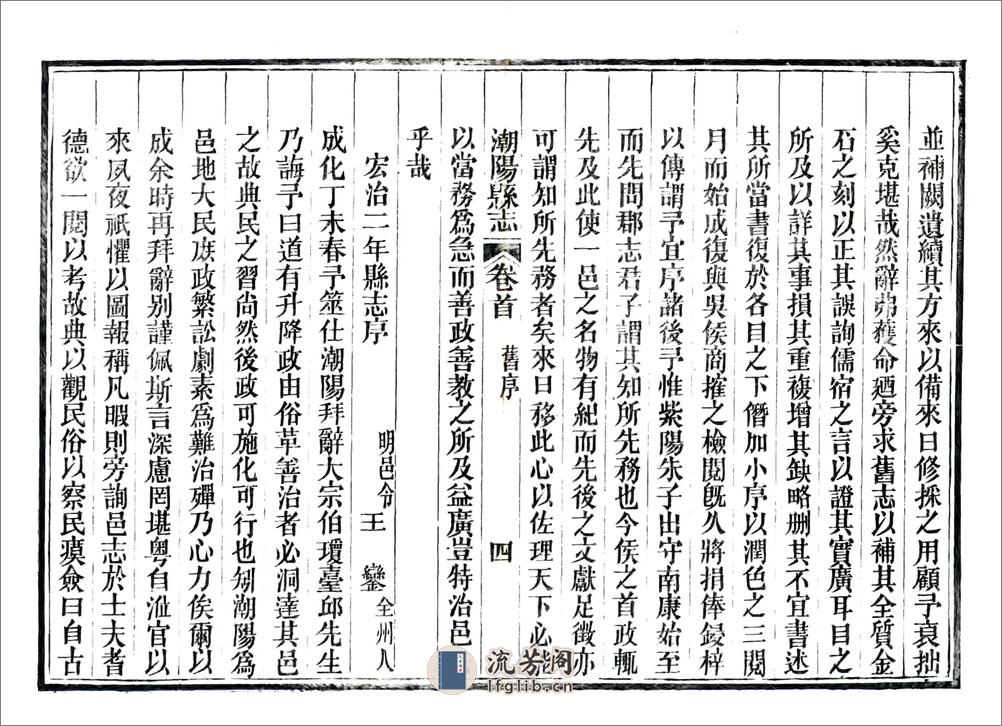 並補闕遺續其方來以備來日修採之用顧予衰拙
奚克堪哉然辭弗獲命廼旁求舊志以補其全質金
石之刻以正其誤詢儒宿之言以證其實廣耳目之
所及以詳其事損其重複增其缺略删其不宜書述
其所當書復於各目之下僭加小序以潤色之三閱
月而始成復與吳侯商搉之檢閱旣久將捐俸鋟梓
以傳謂予宜序諸後予惟紫陽朱子出守南康始至
而先問郡志君子謂其知所先務也今侯之首政輒
先及此使一邑之名物有紀而先後之文獻足徵亦
可謂知所先務者矣來日移此心以佐理天下必能
潮陽縣志 卷首 舊序 四
以當務爲急而善政善教之所及益廣豈特治邑
乎哉
宏治二年縣志序 明邑令王鑾全州人
成化丁未春予筮仕潮陽拜辭大宗伯瓊臺邱先生
乃誨予曰道有升降政由俗革善治者必洞達其邑
之故典民之習尚然後政可施化可行也矧潮陽爲
邑地大民庶政繁訟劇素爲難治殫乃心力俟爾以
成余時再拜辭别謹佩斯言深慮罔堪粤自涖官以
來夙夜祇懼以圖報稱凡暇則旁詢邑志於士夫耆
德欲一閱以考故典以觀民俗以察民瘼僉曰自古
流芳阁
lfglib.cn